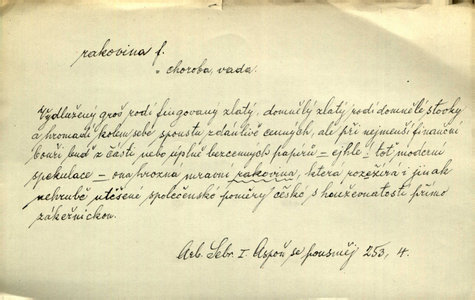 rakovina f.
= choroba, vada.
Vydlužený groš rodí fingovaný zlatý, domnělý zlatý rodí domnělé stovky
a hromadí kolem sebe spoustu zdánlivě cenných, ale při nejmenší finanční
bouři buď z části nebo úplně bezcenných papírů – ejhle! toť moderní
spekulace – ona hrozná mravní rakovina, která rozežírá i jinak
nehrubě utěšené společenské poměry české s houževnatostí přímo
zákeřnickou.
Arb. Sebr. I. Aspoň se pousměj 253, 4.